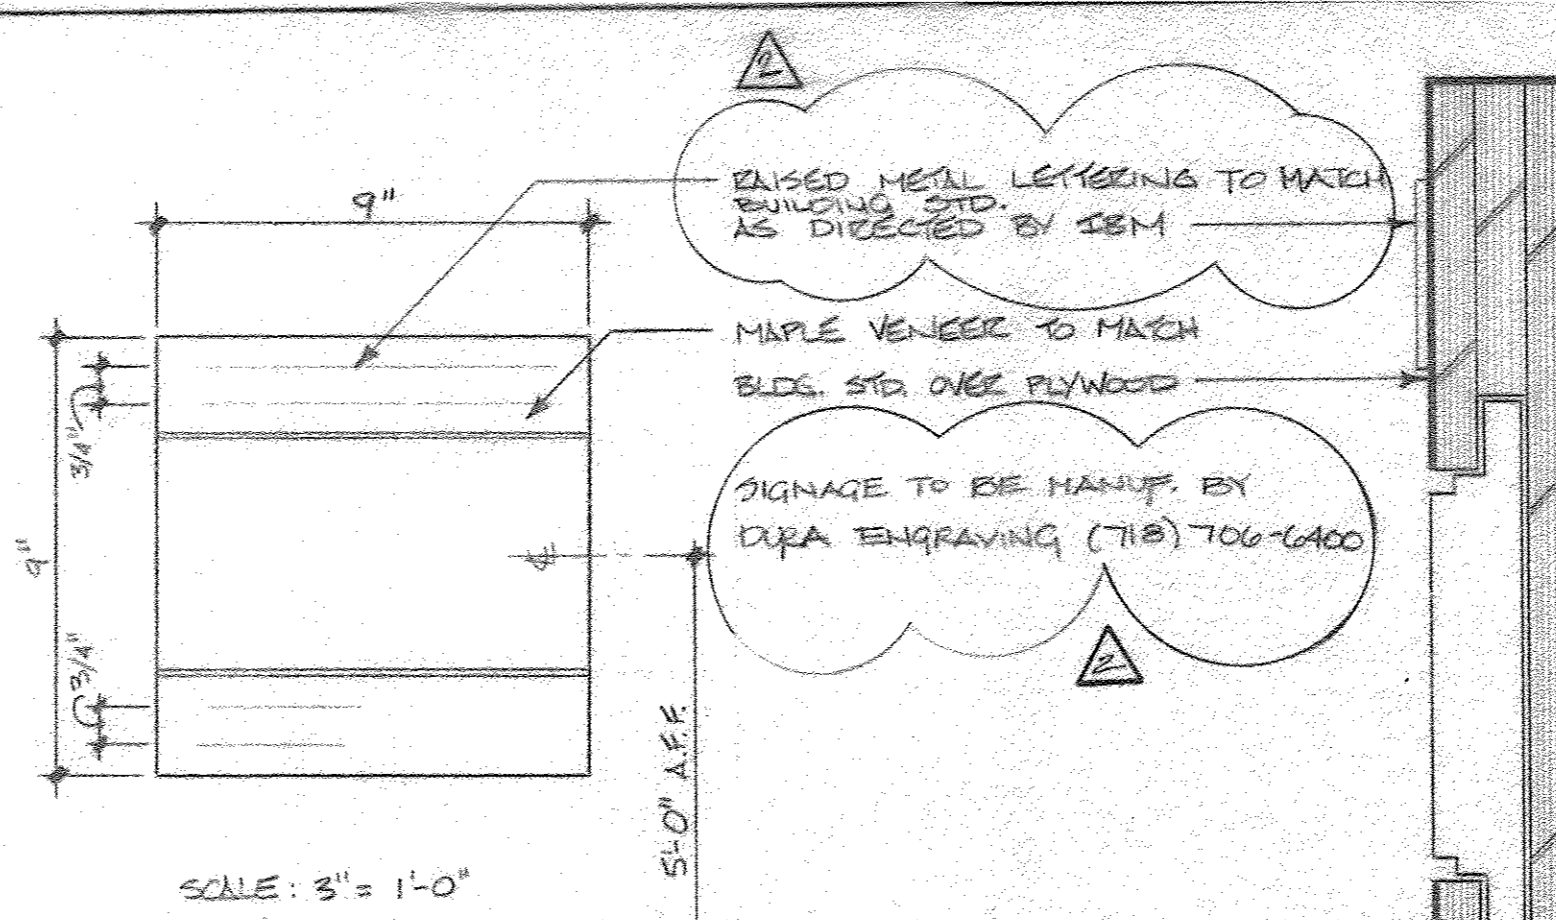 2
9"
RAISED METAL LETTERING TO MATCH
BUILDING STD.
AS DIRECTED BY IBM
MAPLE VENEER TO MATCH
BLDG. STD. OVER PLYWOOD
3/4"
SIGNAGE TO BE MANUF. BY
DURA ENGRAVING (718) 706-6400
9"
3/4"
2
5'-0" A.F.F.
SCALE: 3" = 1'-0"